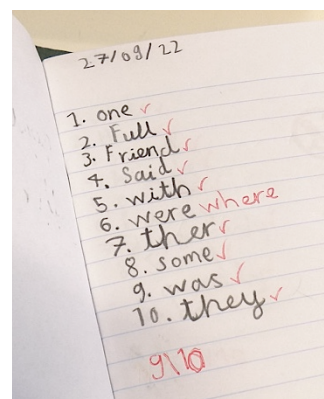 27/09/22
1. one ✓
2. Full ✓
3. Friend ✓
4. Said ✓
5. with ✓
6. were where
7. ther ✓
8. some ✓
9. was ✓
10. they ✓
9\10